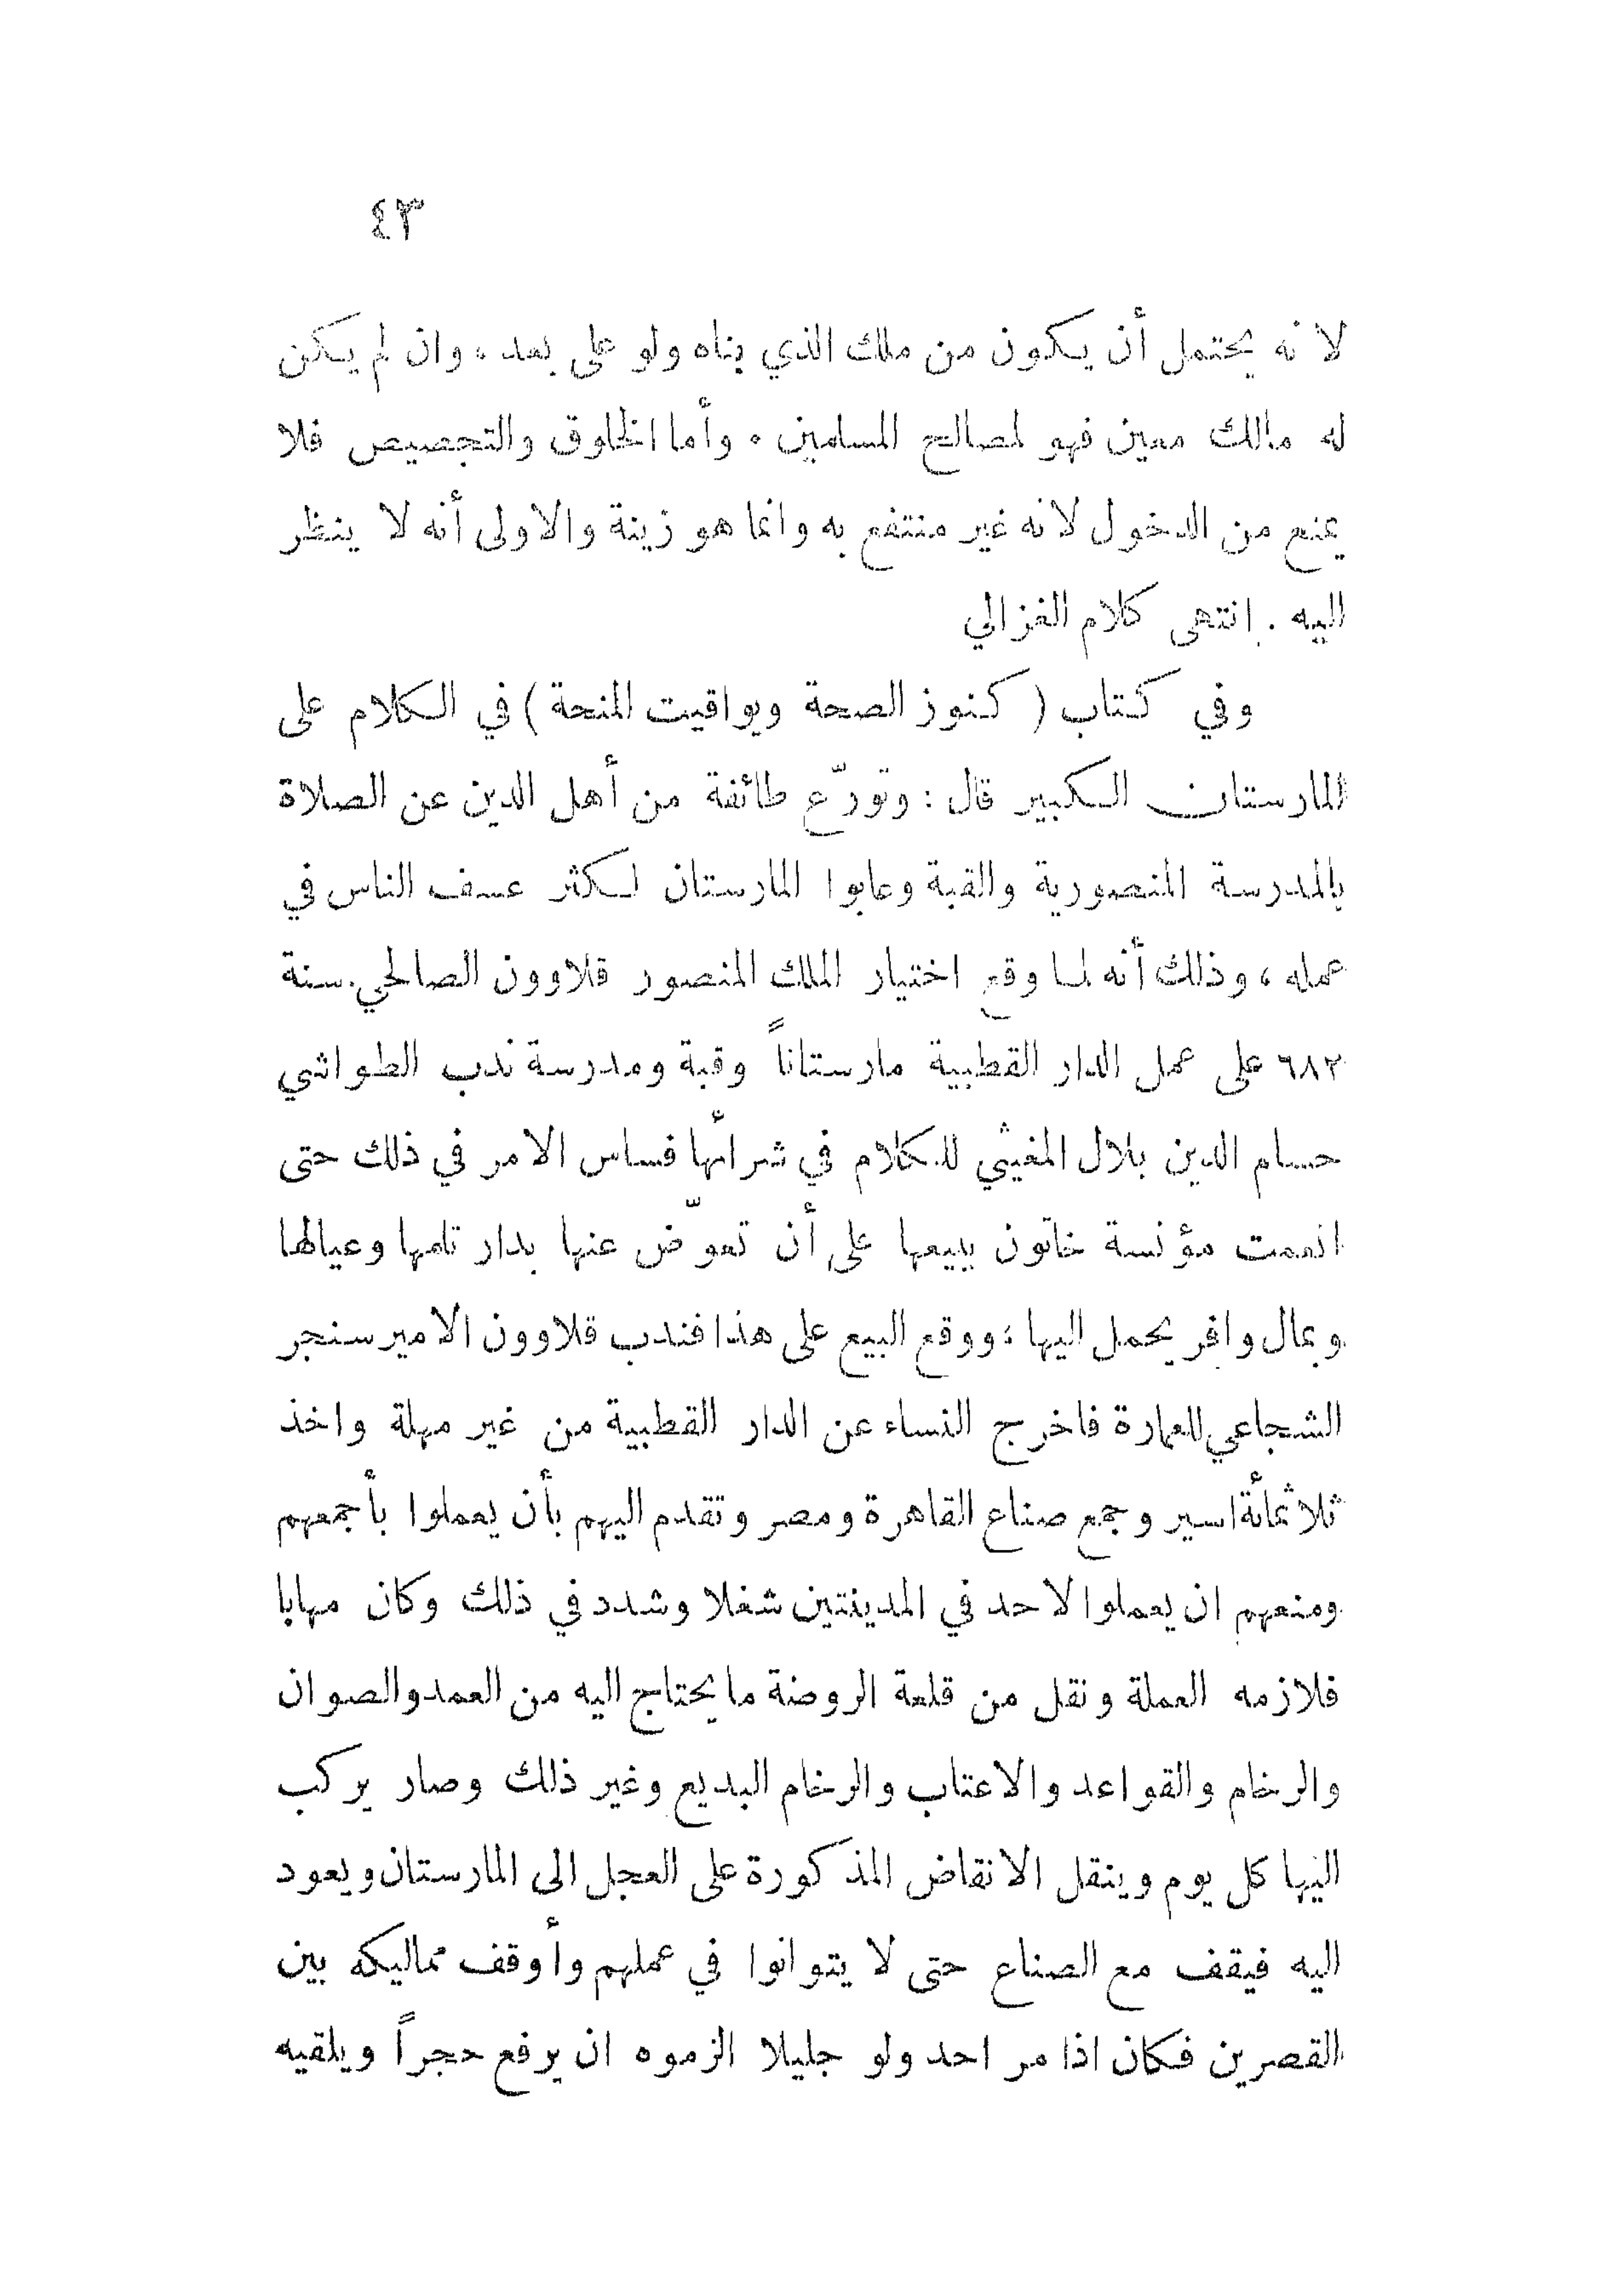 ٤٣
لانه يحتمل أن يكون من ملك الذي بناه ولو على بعد ، وان لم يكن
له مالك معين فهو لمصالح المسلمين . وأما الخلوق والتجصيص فلا
يمنع من الدخول لانه غير منتفع به وانما هو زينة والاولى أنه لا ينظر
اليه . انتهى كلام الغزالي
وفي كتاب ( كنوز الصحة ويواقيت المنحة ) في الكلام على
المارستان الكبير قال : وتورّع طائفة من أهل الدين عن الصلاة
بالمدرسة المنصورية والقبة وعابوا المارستان لكثر عسف الناس في
عمله ، وذلك أنه لما وقع اختيار الملك المنصور قلاوون الصالحي سنة
٦٨٢ على عمل الدار القطبية مارستاناً وقبة ومدرسة ندب الطواشي
حسام الدين بلال المغيثي للكلام في شرائها فساس الامر في ذلك حتى
انعمت مؤنسة خاتون ببيعها على أن تعوّض عنها بدار تلمها وعيالها
وبمال وافر يحمل اليها ، ووقع البيع على هذا فندب قلاوون الامير سنجر
الشجاعي للعمارة فاخرج النساء عن الدار القطبية من غير مهلة واخذ
ثلاثمائة اسير وجمع صناع القاهرة ومصر وتقدم اليهم بأن يعملوا بأجمعهم
ومنعهم ان يعملوا لاحد في المدينتين شغلا وشدد في ذلك وكان مهابا
فلازمه العملة ونقل من قلعة الروضة ما يحتاج اليه من العمد والصوان
والرخام والقواعد والاعتاب والرخام البديع وغير ذلك وصار يركب
اليها كل يوم وينقل الانقاض المذكورة على العجل الى المارستان ويعود
اليه فيقف مع الصناع حتى لا يتوانوا في عملهم وأوقف مماليكه بين
القصرين فكان اذا مر احد ولو جليلا الزموه ان يرفع حجراً ويلقيه